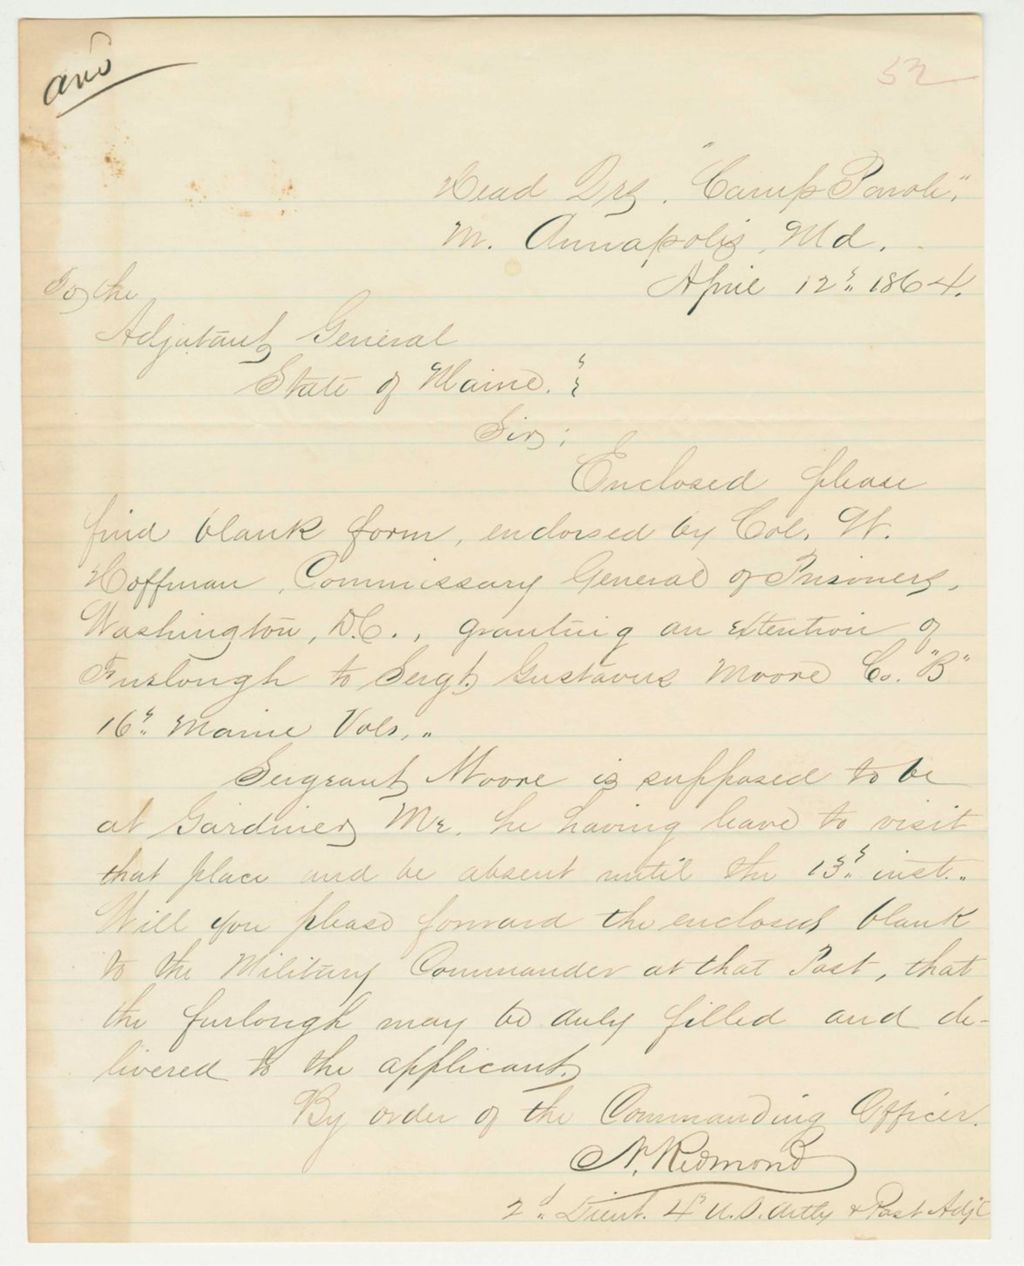 ans
52
Head Qrs. "Camp Parole,"
Nr. Annapolis, Md.
April 12", 1864.
To the
Adjutant General
State of Maine.
Sir;
Enclosed please
find blank form, endorsed by Col. W.
Hoffman, Commissary General of Prisoners,
Washington, D.C., granting an extention of
Furlough to Sergt. Gustavus Moore Co. "B"
16" Maine Vols.,
Sergeant Moore is supposed to be
at Gardiner Me. he having leave to visit
that place and be absent until the 13" inst.
Will you please forward the enclosed blank
to the Military Commander at that Post, that
the furlough may be duly filled and de-
livered to the applicant.
By order of the Commanding Officer.
N. Redmond
2d. Lieut. 4" U.S. Artly & Post Adjt